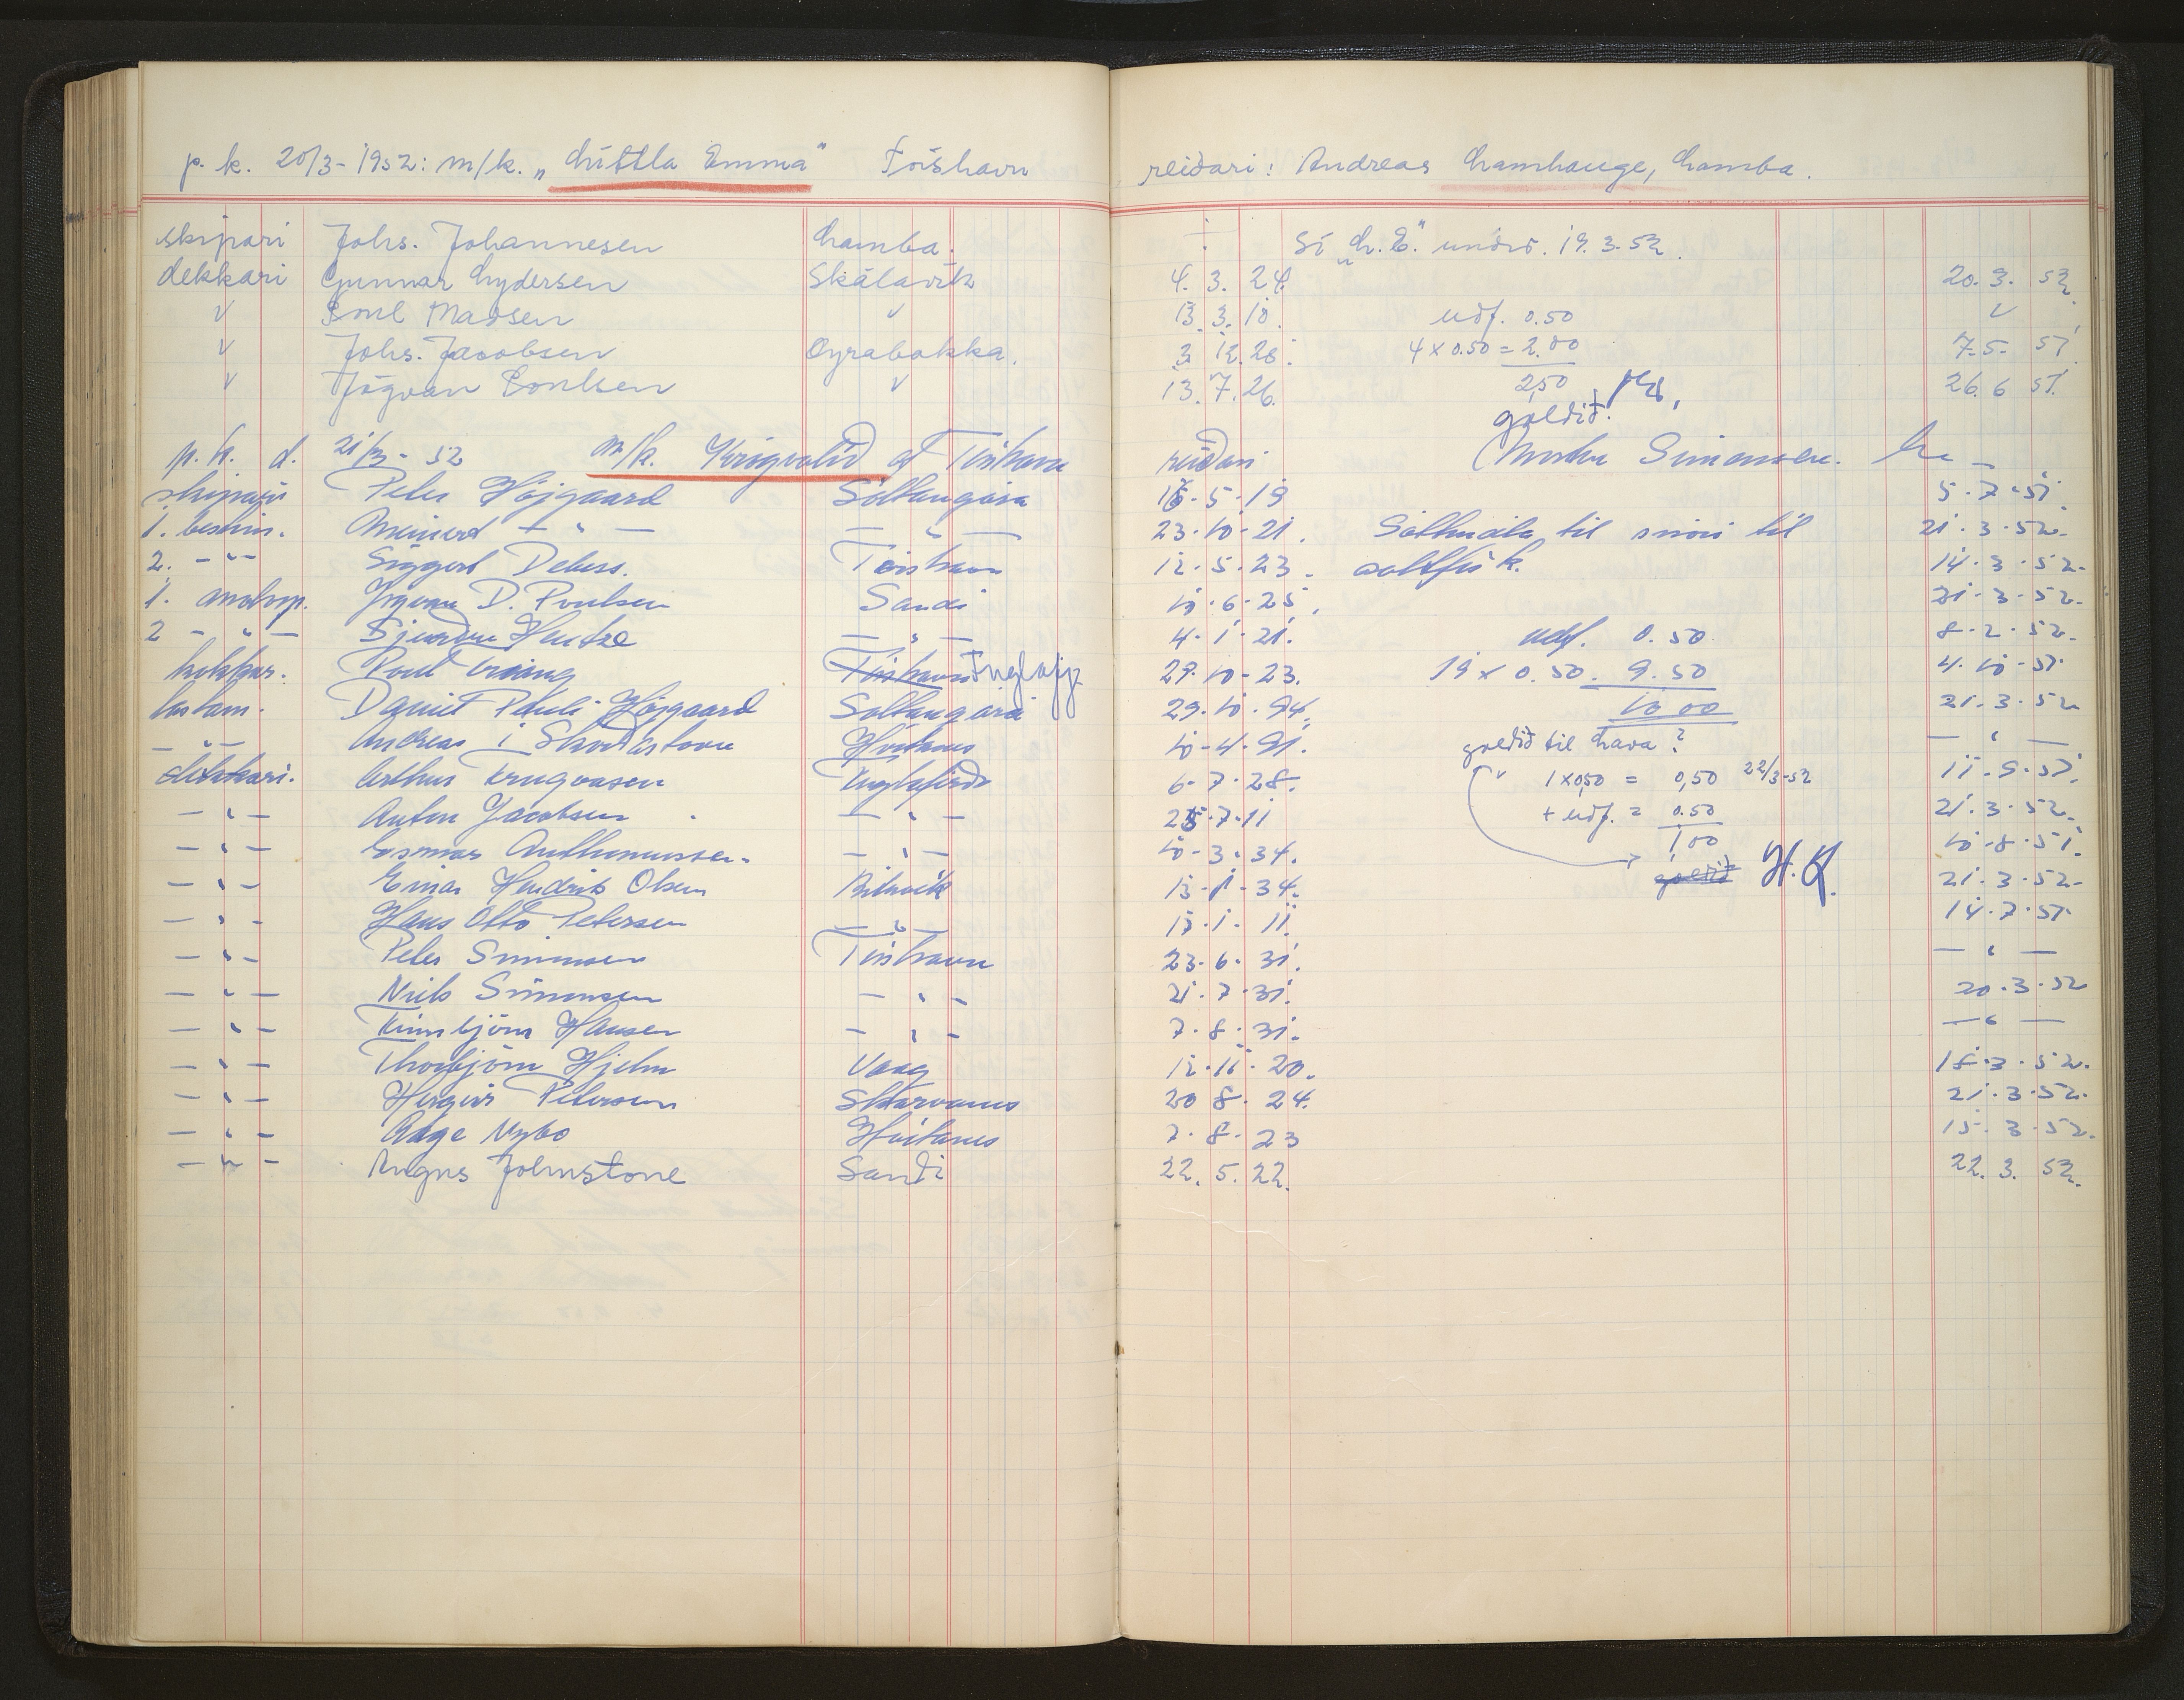 p. k. 20/3-1952: m/k. „Líttla Emma" Tórshavn reiðari: Andreas Lamhauge, Lamba.
skipari Johs. Johannesen Lamba. Sí „L.E." undir. 19.3.52.
dekkari Gunnar Lydersen Skálavík 4. 3. 24. 20. 3. 52.
v Poul Madsen v 13. 3. 10. udf. 0.50 v
v Johs. Jacobsen Oyrabakka. 3 12. 28. 4 x 0.50 = 2.00 7.5. 51.
v Jógvan Poulsen v 13. 7. 26. 2,50 26. 6 51.
goldið.
p. k. d. 21/3-52 m/k. at Tórshavn reiðari Simonsen.
skipari Peter Højgaard Saltangará 16-5-19 5-7-51
1. bestm. Meinerd — " — — " — 23-10-21. til til 21.3.52.
2. - " - Siggert Debess. Tórshavn 12.5.23. saltfisk. 14.3.52.
1. Jógvan D. Poulsen Sandi 10.6.25. 21.3.52.
2 - " - Hentze — " — 4.1.21. udf. 0.50 8.2.52.
kokkur. Poul Tórshavn Fuglafj. 29.10-23. 19 x 0.50. 9.50 4.10-51.
Dániel Pauli Højgaard Saltangará 29.10.94. 10.00 21.3.52
- " - Andreas í 10-4-91. goldið til hava? — " —
dekkari. Arthur Fuglafjørð 6-7-28. v 1x0,50 = 0,50 22/3-52 11-9-51.
— " — Anton Jacobsen — " — 25.7.11 + udf. = 0.50 21.3.52.
— " — — " — 10-3-34. 1,00 10-8-51.
— " — Einar Hendrik Olsen 13-1-34. goldið H.K. 21.3.52-
— " - Hans Otto Petersen — " — 15.1.11. 14.7.51.
— " — Peter Simonsen Tórshavn 23.6.31. — " —
— " — Niels Simonsen — " — 21.7.31. 20.3.52
— " — Finnbjörn Hansen — " — 7.8.31. — " —
— " — Thorbjörn Hjelm Vaag 12.11.20. 18.3.52.
— " — Petersen Skarvanes 20 8. 24. 21.3.52.
— " — Aage Nybo Hvítanes 2.8.23 15.3.52.
— " — Angus Johnstone Sandi 22. 5. 22. 22. 3. 52.